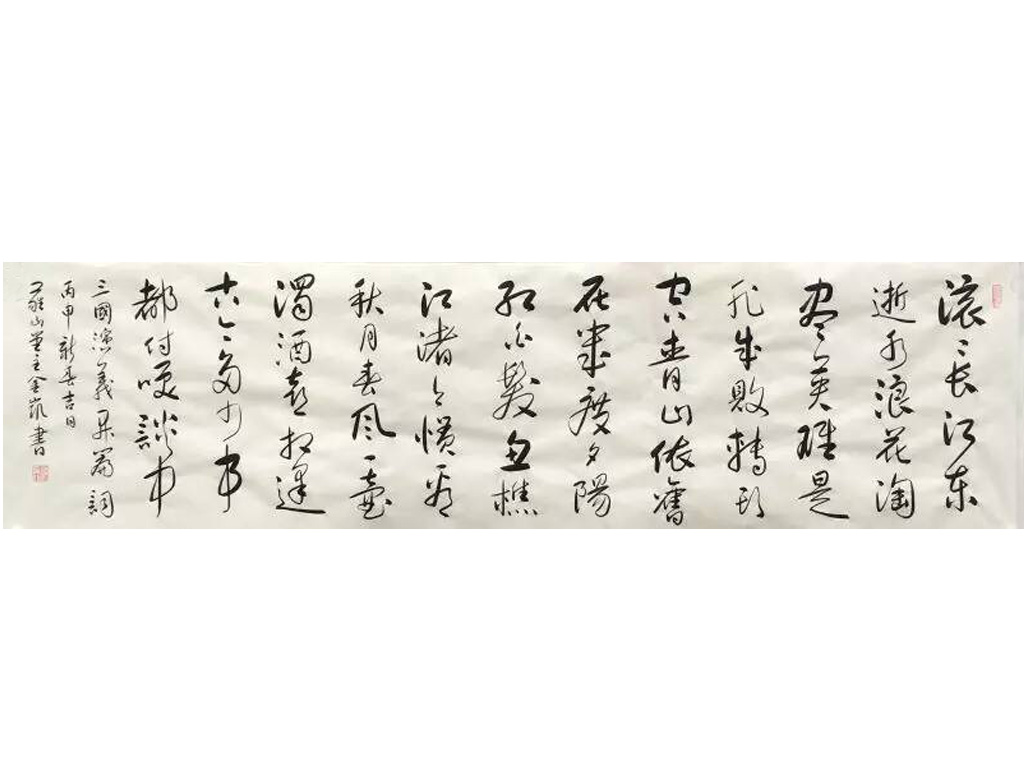 滚滚长江东
逝水浪花淘
尽英雄是
非成败轉头
空青山依舊
在几度夕陽
红白髮渔樵
江渚上惯看
秋月春风一壶
濁酒喜相逢
古今多少事
都付笑談中
三國演義开篇詞
丙申新春吉日
山堂主金凯書